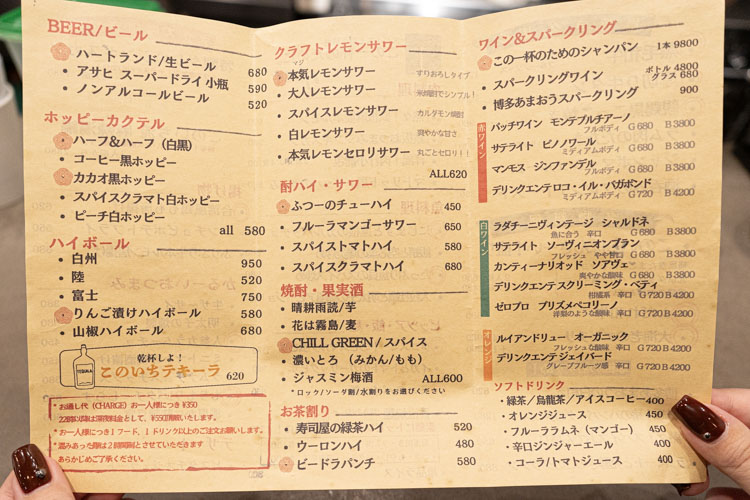 BEER/ビール
ハートランド/生ビール 680
・アサヒ スーパードライ 小瓶 590
・ノンアルコールビール 520
ホッピーカクテル
ハーフ&ハーフ（白黒）
・コーヒー黒ホッピー
カカオ黒ホッピー
・スパイスクラマト白ホッピー
・ピーチ白ホッピー
all 580
ハイボール
・白州 950
・陸 520
・富士 750
りんご漬けハイボール 580
・山椒ハイボール 680
乾杯しよ！
このいちテキーラ 620
TEQUILA
*お通し代（CHARGE）お一人様につき¥350
22時以降は深夜料金として、¥550頂戴いたします。
*お一人様につき1フード、1ドリンク以上のご注文お願いします。
*混みあった際は2時間制とさせていただきます
あらかじめご了承ください。
クラフトレモンサワー
マジ
本気レモンサワー すりおろしタイプ
・大人レモンサワー 米焼酎でシンプル！
・スパイスレモンサワー カルダモン焼酎
・白レモンサワー 爽やかな甘さ
・本気レモンセロリサワー 丸ごとセロリ！！
ALL620
酎ハイ・サワー
ふつーのチューハイ 450
・フルーラマンゴーサワー 650
・スパイストマトハイ 580
・スパイスクラマトハイ 680
焼酎・果実酒
・晴耕雨読/芋
・花は霧島/麦
CHILL GREEN / スパイス
・濃いとろ（みかん/もも）
・ジャスミン梅酒 ALL600
*ロック/ソーダ割/水割りをお選びください
お茶割り
・寿司屋の緑茶ハイ 520
・ウーロンハイ 480
ビードラパンチ 580
ワイン&スパークリング
この一杯のためのシャンパン 1本 9800
・スパークリングワイン ボトル 4800 グラス 680
・博多あまおうスパークリング 900
赤ワイン
パッチワイン モンテプルチアーノ
フルボディ G 680 B 3800
サテライト ピノノワール
ミディアムボディ G 680 B 3800
マンモス ジンファンデル
フルボディ G 680 B 3800
デリンクエンテロコ・イル・バガボンド
ミディアムボディ G 720 B 4200
白ワイン
ラダチーニヴィンテージ シャルドネ
魚に合う 辛口 G 680 B 3800
サテライト ソーヴィニオンブラン
フレッシュ やや甘口 G 680 B 3800
カンティーナリオッド ソアヴェ
爽やかな酸味 G 680 B 3800
デリンクエンテスクリーミング・ベティ
柑橘系 辛口 G 720 B 4200
ゼロプロ プリズメペコリーノ
洋梨のような酸味 辛口 G 720 B 4200
オレンジ
ルイアンドリュー オーガニック
フレッシュな酸味 辛口 G 720 B 4200
デリンクエンテジェイバード
グレープフルーツ感 辛口 G 720 B 4200
ソフトドリンク
・緑茶/烏龍茶/アイスコーヒー 400
・オレンジジュース 450
・フルーララムネ（マンゴー） 450
・辛口ジンジャーエール 400
・コーラ/トマトジュース 400